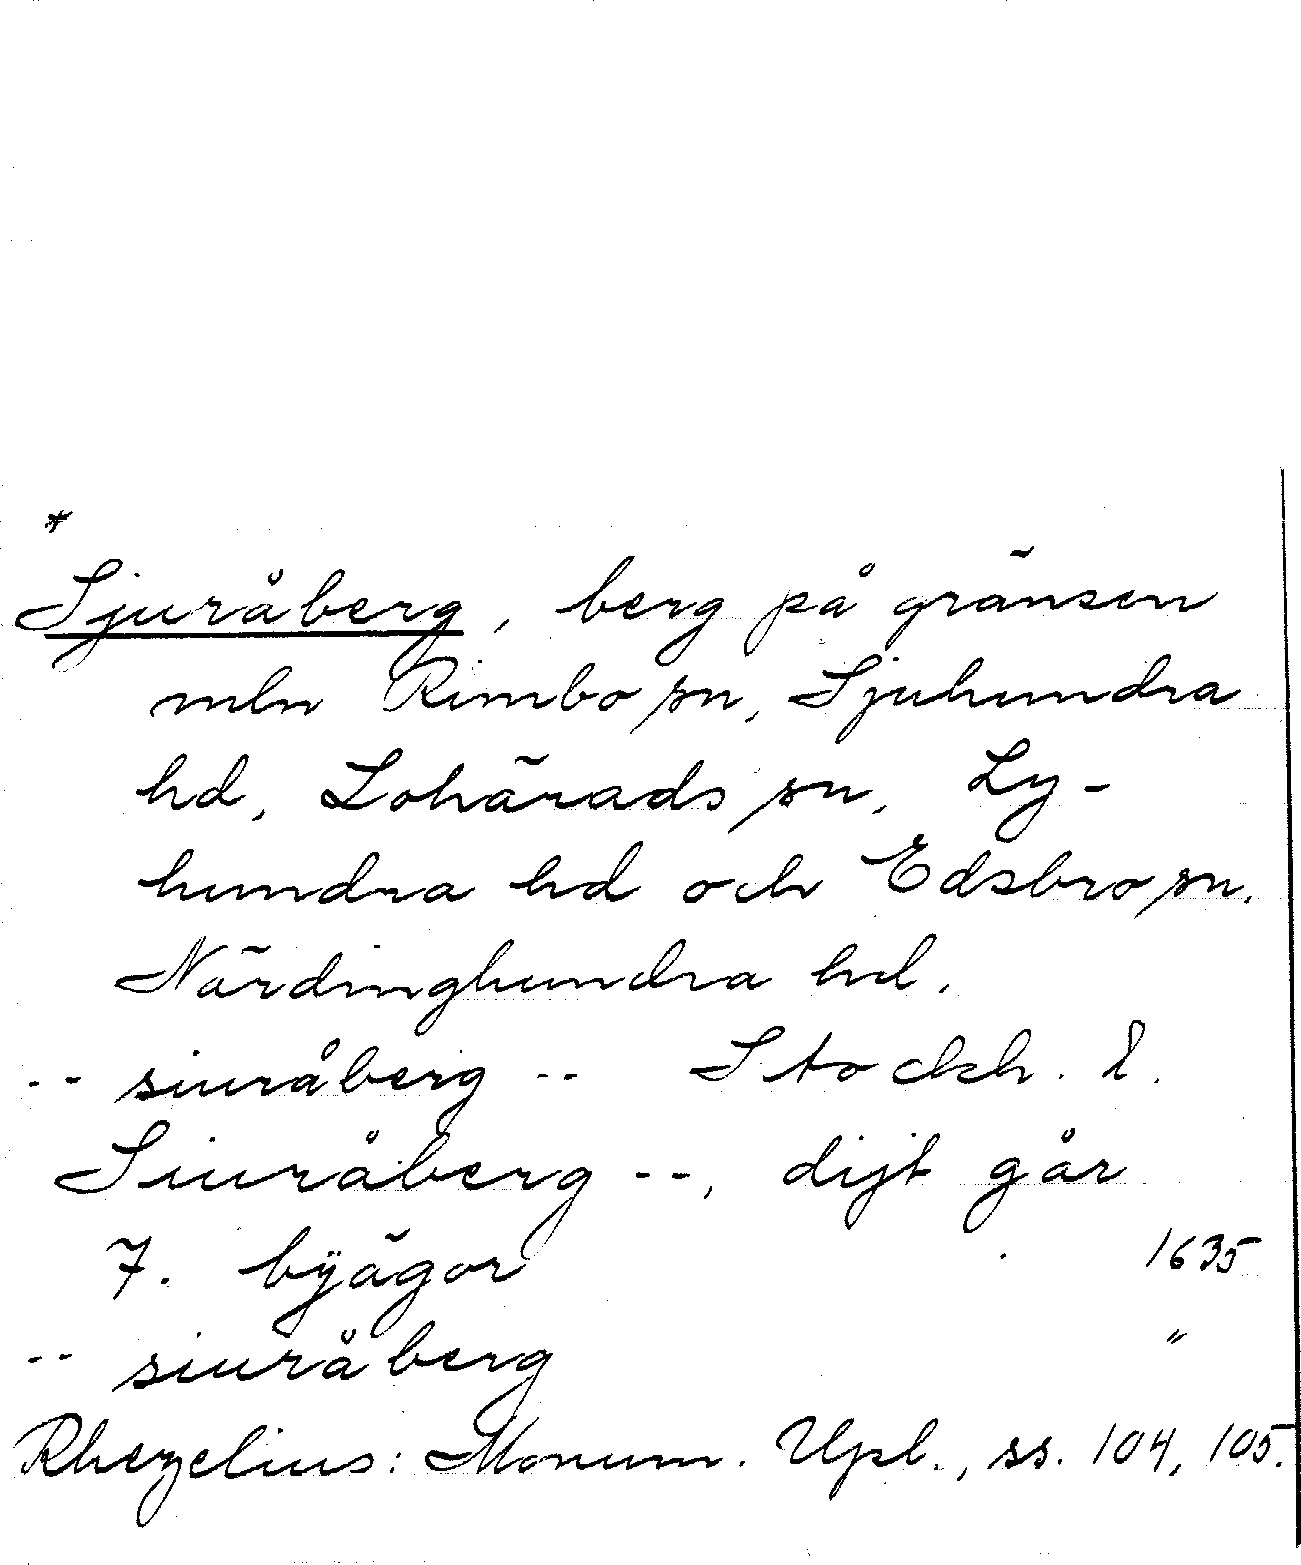 *
Sjuråberg, berg på gränsen
mln Rimbo sn, Sjuhundra
hd, Lohärads sn, Ly-
hundra hd och Edsbro sn.
Närdinghundra hd.
-- siuråberg -- Stockh. l.
Siuråberg --, dijt går
7. bÿägor 1635
-- siuråberg "
Rhezelius: Monum. Upl., ss. 104, 105.